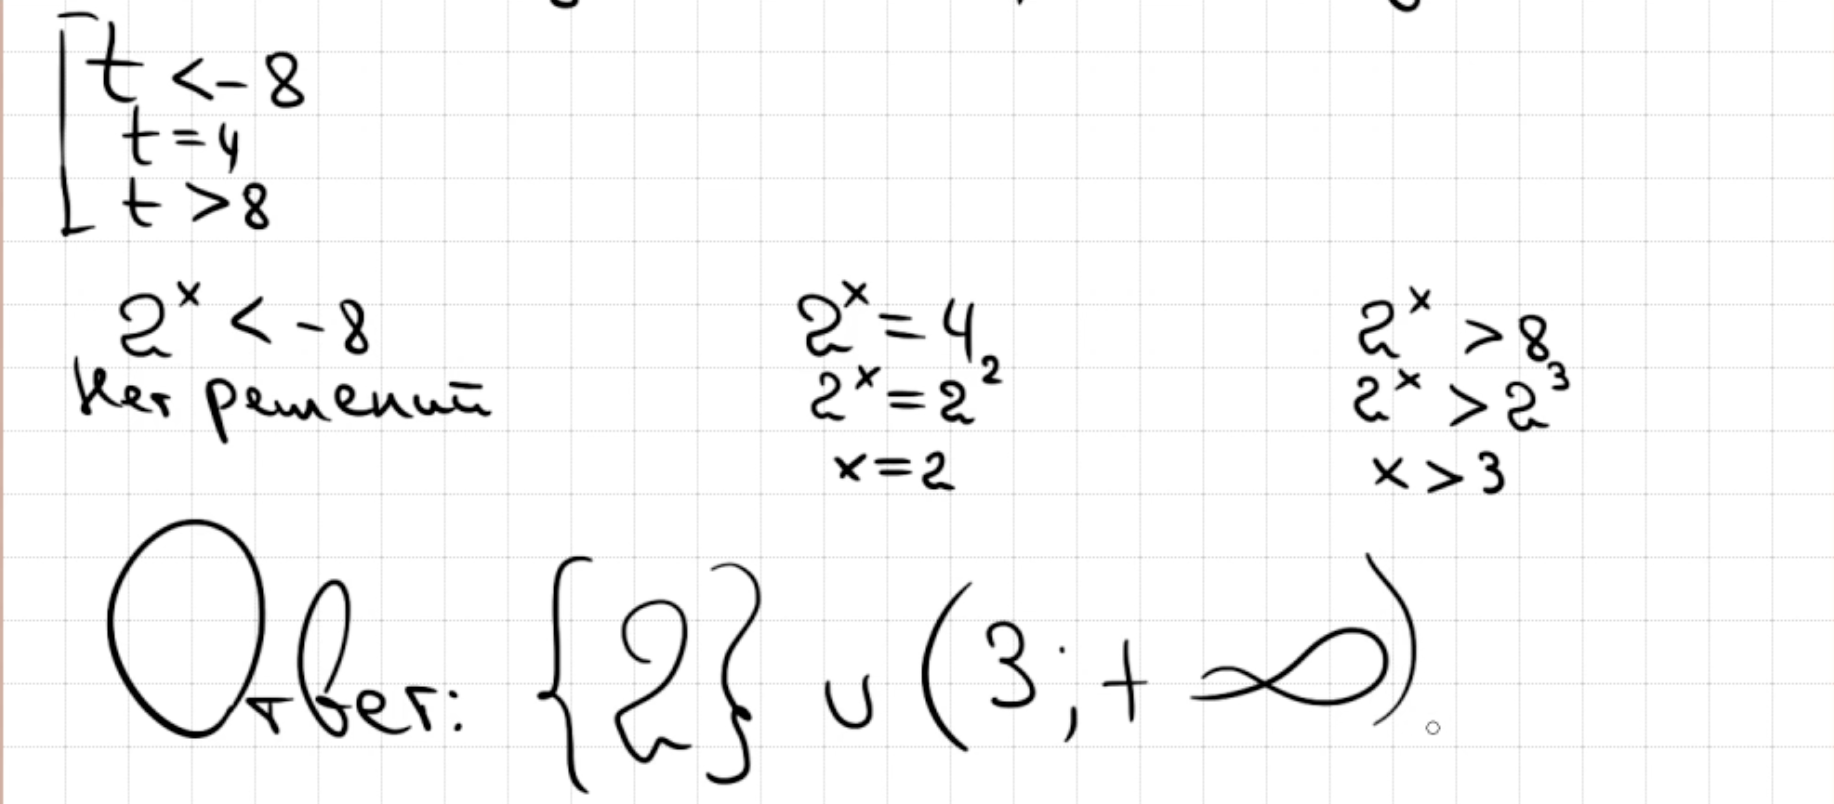 t < -8
t = 4
t > 8
2^x < -8
Нет решений
2^x = 4
2^x = 2^2
x = 2
2^x > 8
2^x > 2^3
x > 3
Ответ: {2} ∪ (3; +∞).